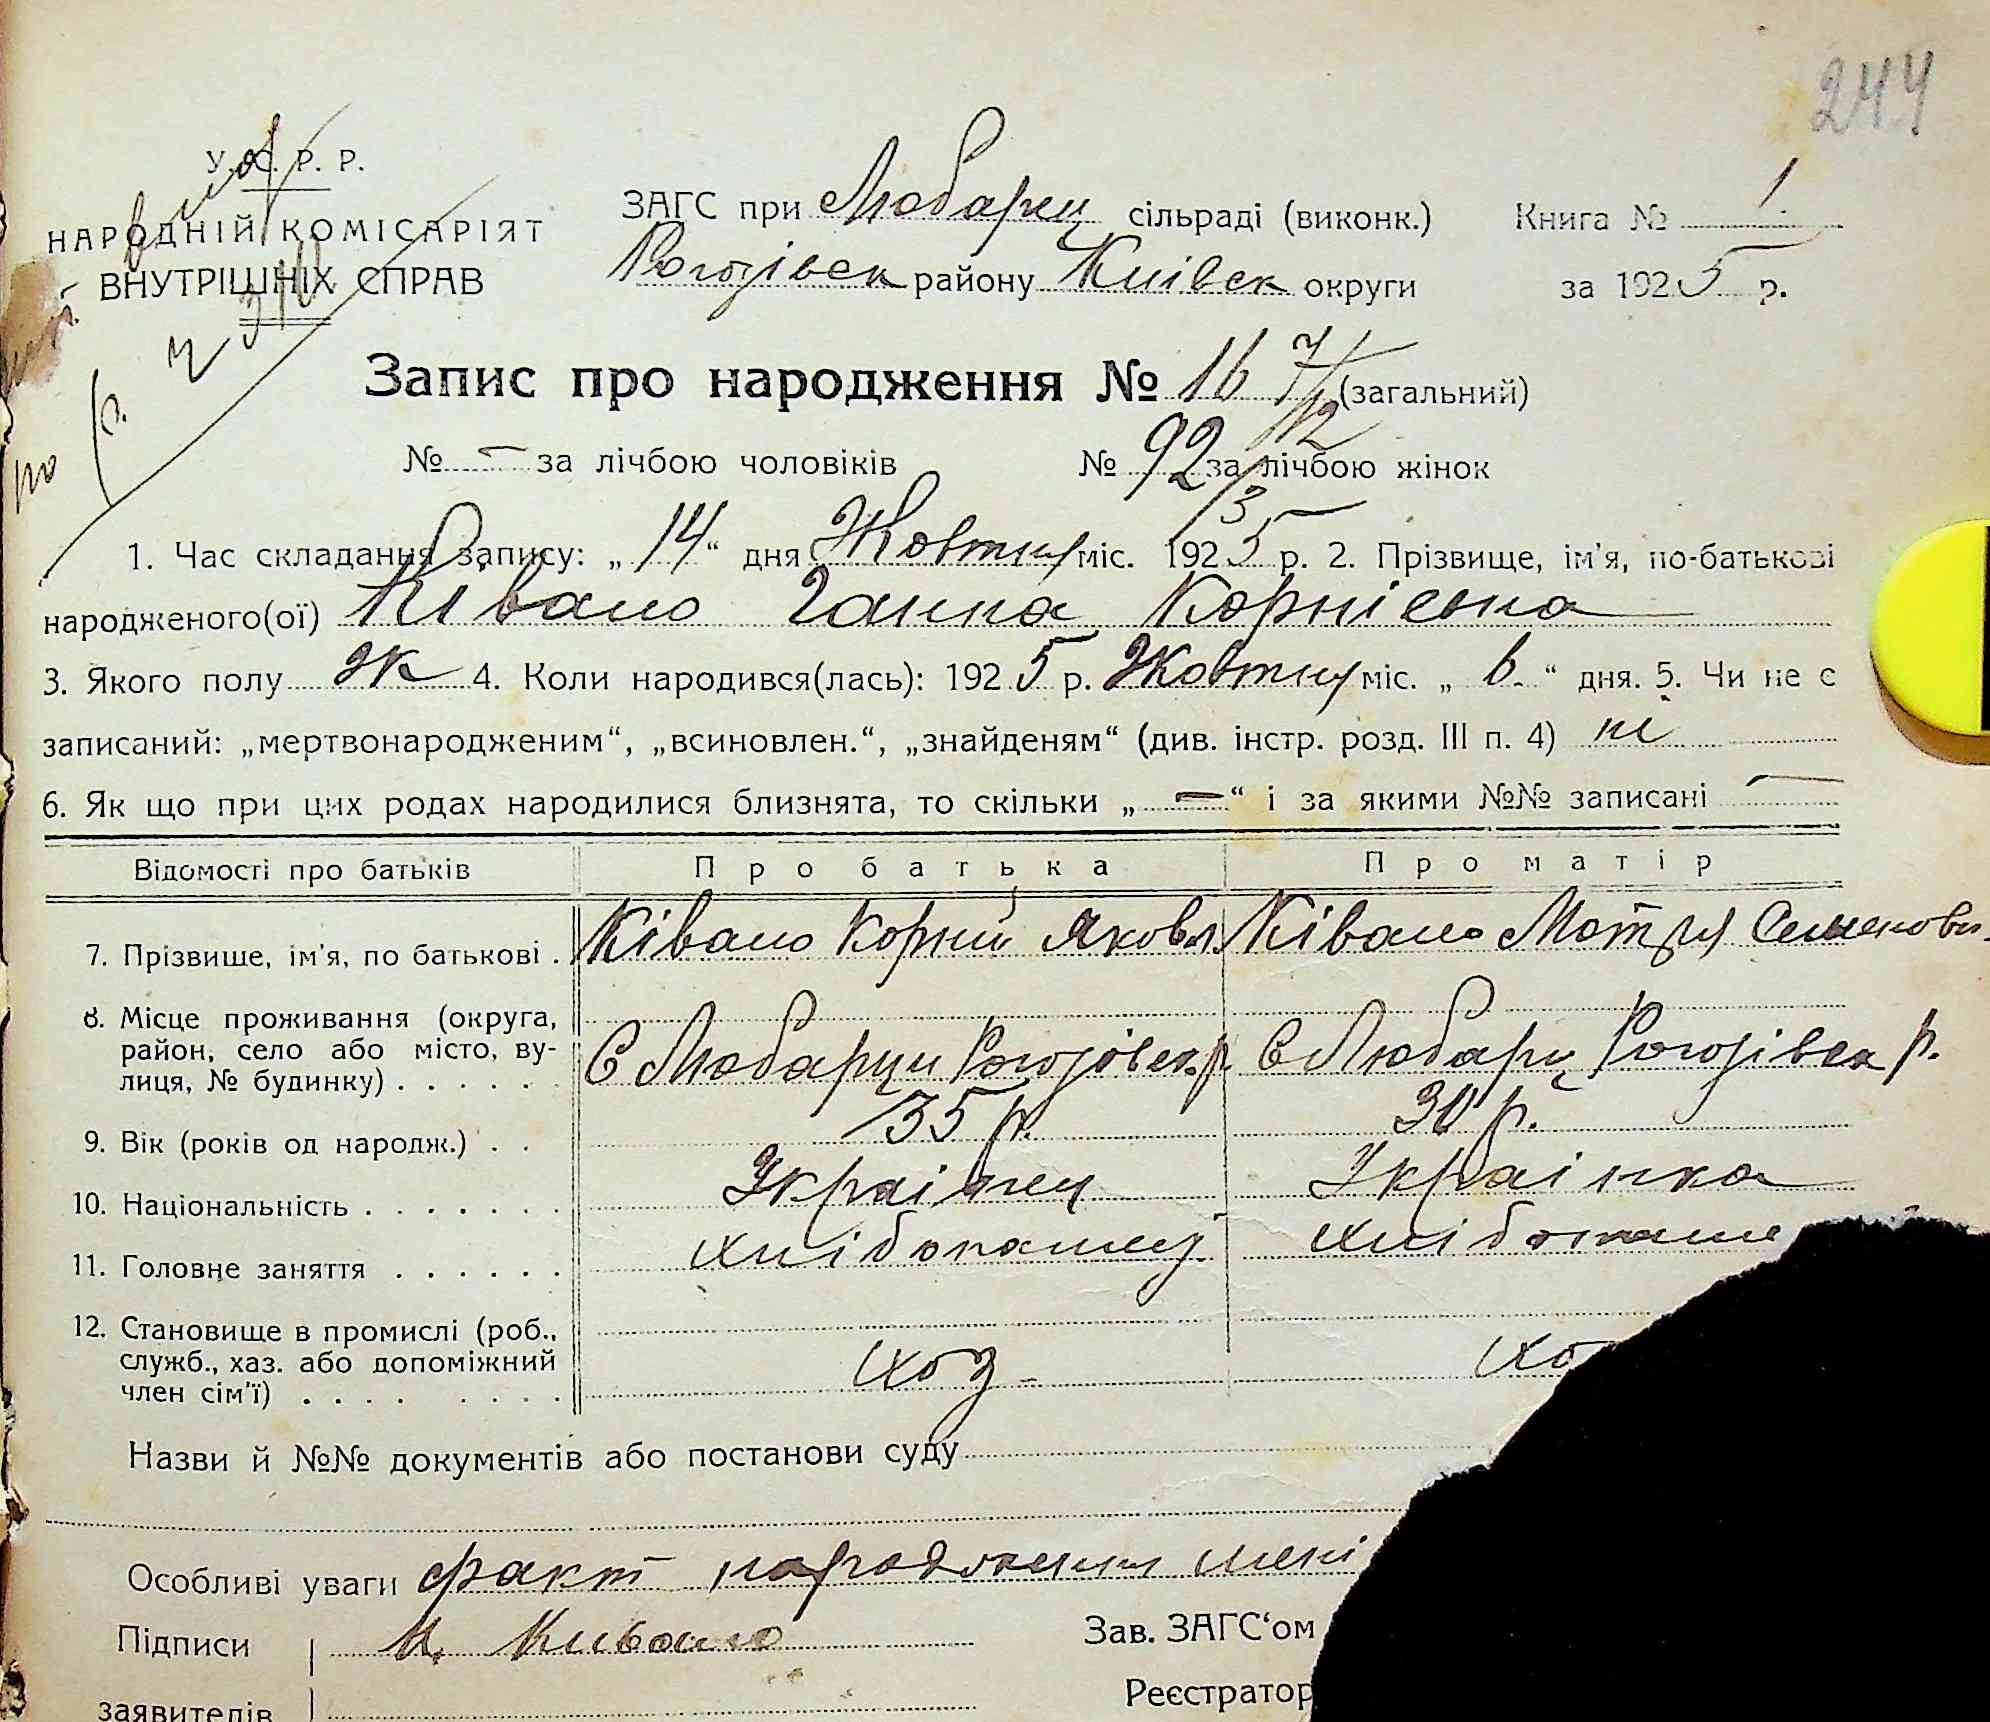 244
У. С. Р. Р.
НАРОДНІЙ КОМІСАРІЯТ
ВНУТРІШНІХ СПРАВ
ЗАГС при Любарец сільраді (виконк.) Книга № 1.
Рогозівськ району Київськ округи за 1925 р.
Запис про народження № 16 (загальний)
№ - за лічбою чоловіків № 92 за лічбою жінок
1. Час складання запису: „14“ дня Жовтня міс. 1925 р. 2. Прізвище, ім'я, по-батькові
народженого(ої) Ківало Ганна Корніевна
3. Якого полу Ж 4. Коли народився(лась): 1925 р. Жовтня міс. „ 6. “ дня. 5. Чи не є
записаний: „мертвонародженим“, „всиновлен.“, „знайденям“ (див. інстр. розд. III п. 4) ні
6. Як що при цих родах народилися близнята, то скільки „ — “ і за якими №№ записані —
Відомості про батьків Про батька Про матір
7. Прізвище, ім'я, по батькові . Ківало Корній Яковл. Ківало Мотря Семеновн.
8. Місце проживання (округа,
район, село або місто, ву-
лиця, № будинку) . . . . . . С Любарци Рогозівськ. р. С Любарц Рогозівськ р.
9. Вік (років од народж.) . . 35 р. 30 р.
10. Національність . . . . . . . Українец Українка
11. Головне заняття . . . . . . хлібопашец хлібопаше
12. Становище в промислі (роб.,
служб., хаз. або допоміжний
член сім'ї) . . . . . . . . хоз хо
Назви й №№ документів або постанови суду
Особливі уваги факт народження мені
Підписи К. Кивало Зав. ЗАГС‘ом
Реєстратор
заявителів